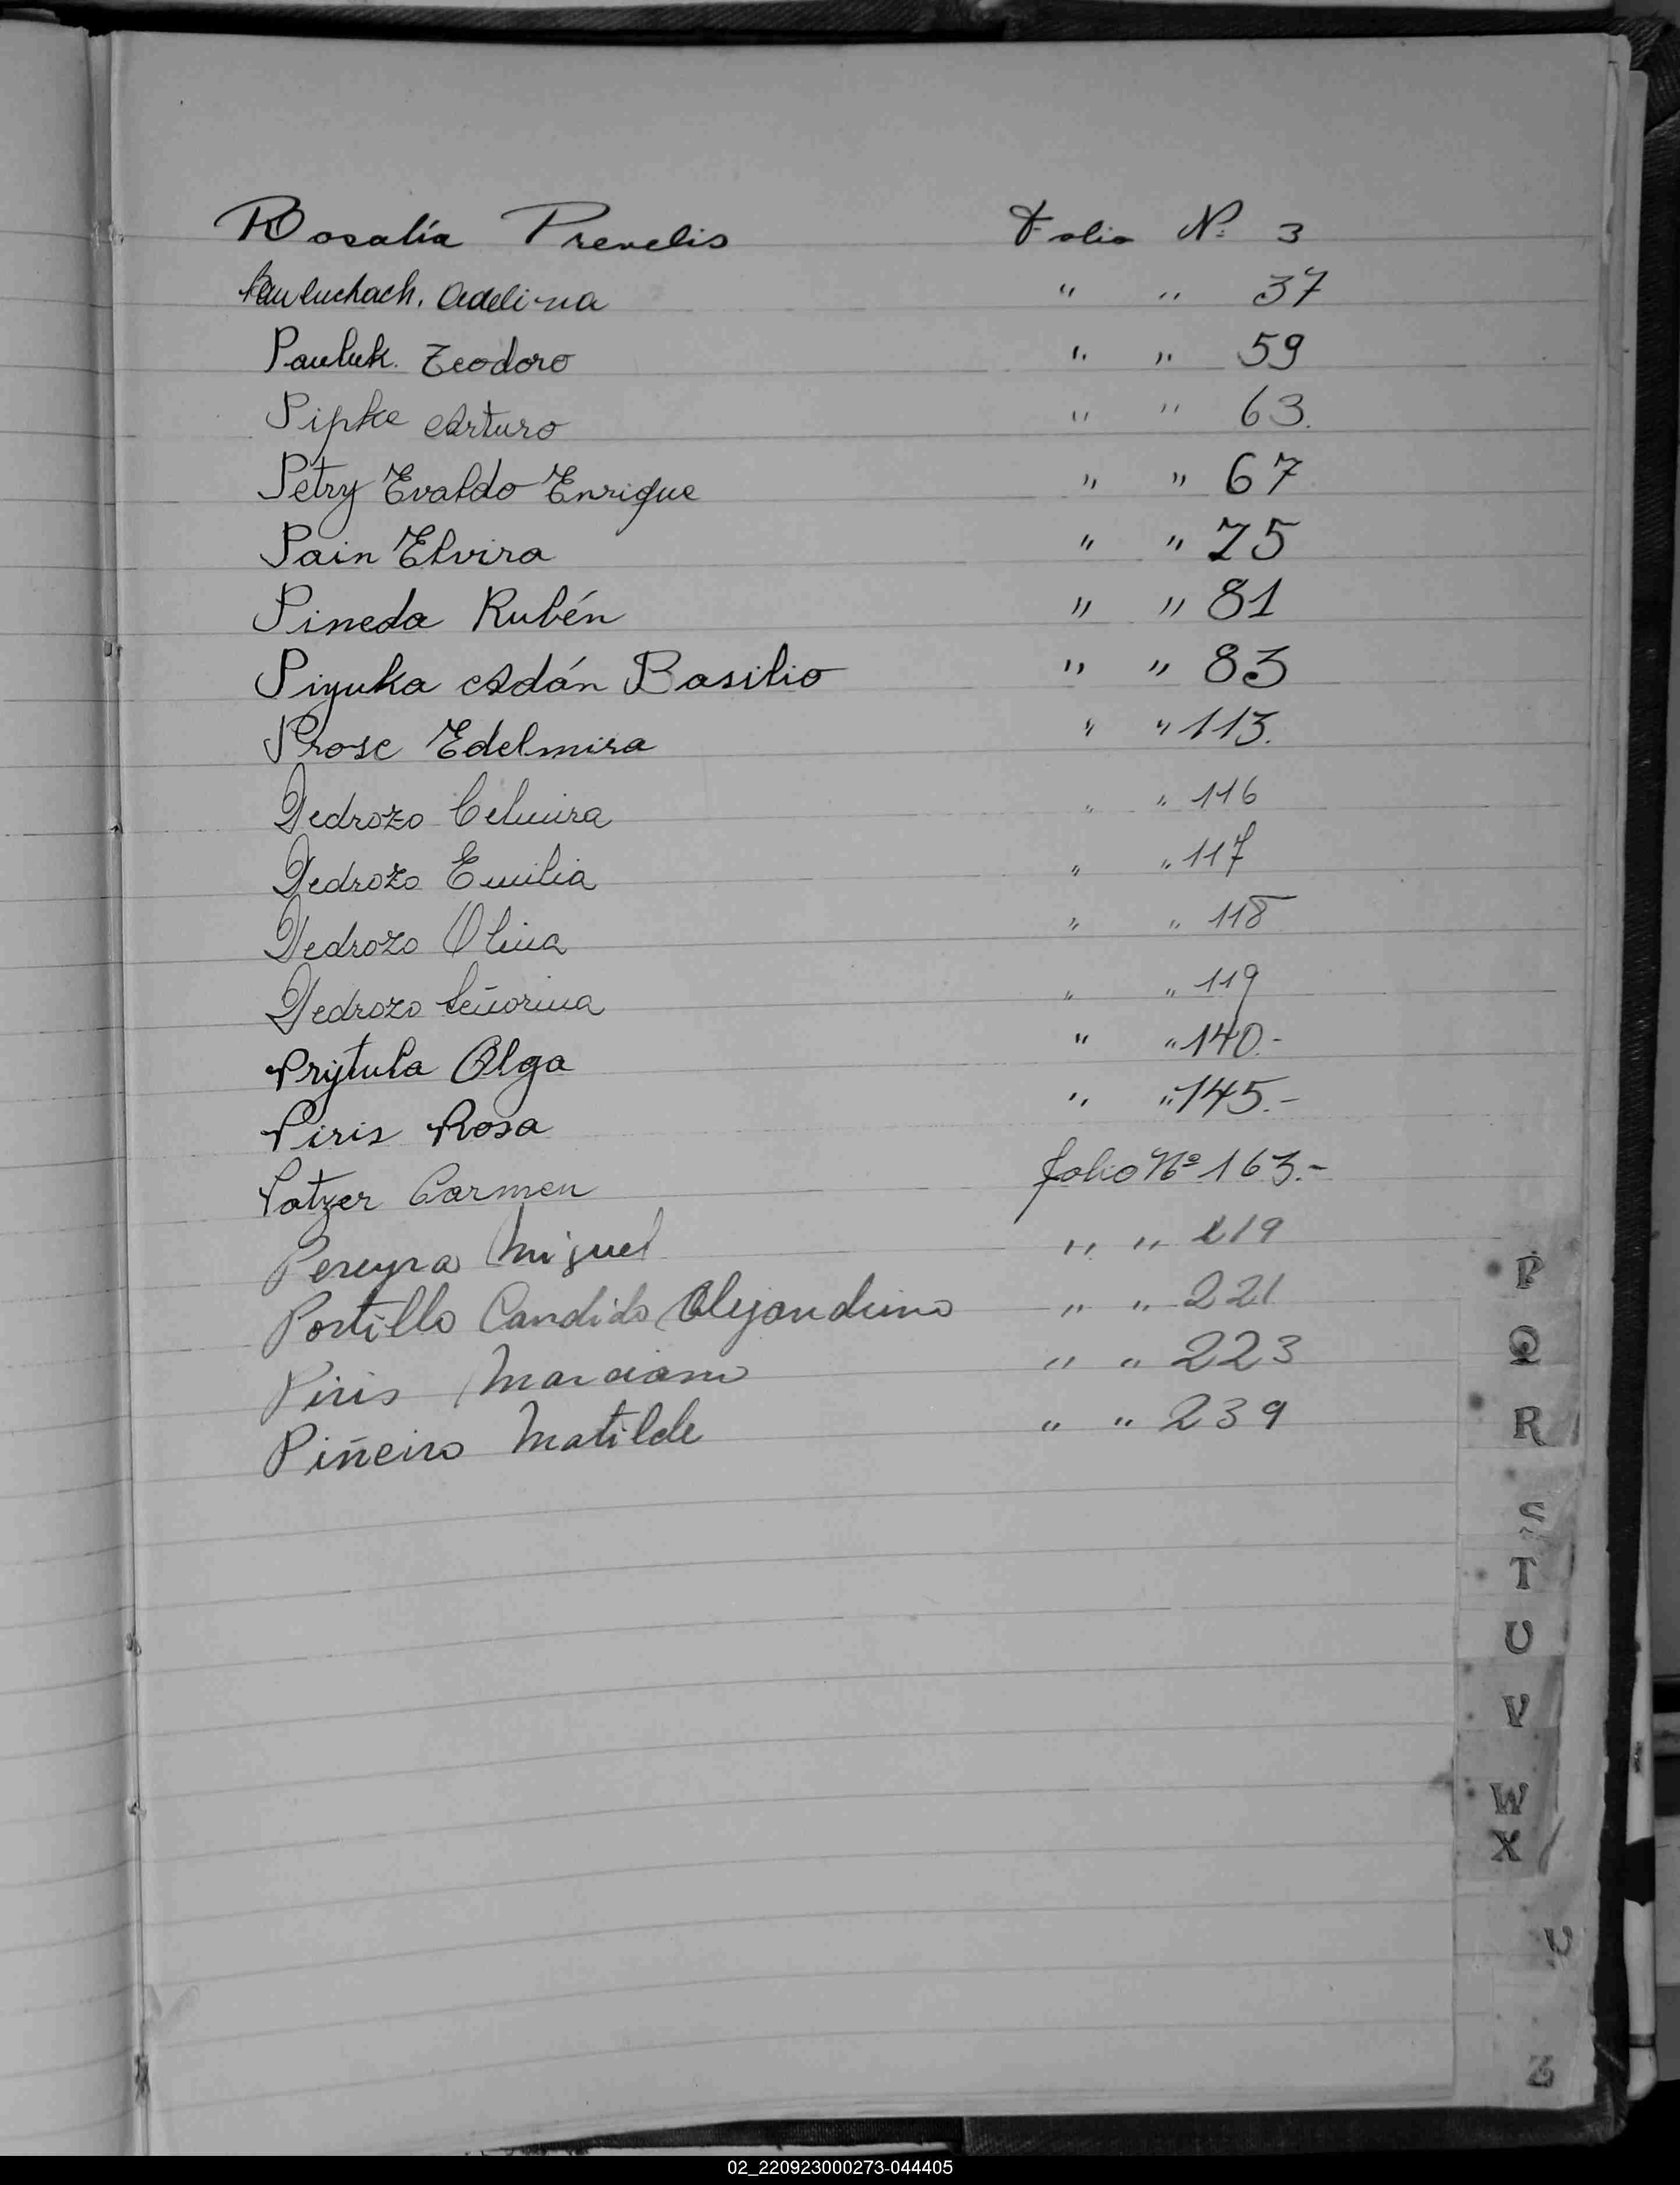 Rosalía Prevelis Folio Nº 3
Pauluchach. Adelina " " 37
Pauluk. Teodoro " " 59
Pipke Arturo " " 63.
Petry Evaldo Enrique " " 67
Pain Elvira " " 75
Pineda Rubén " " 81
Piyuka Adán Basilio " " 83
Prose Edelmira " " 113.
Pedrozo Celmira " " 116
Pedrozo Emilia " " 117
Pedrozo Olina " " 118
Pedrozo Señorina " " 119
Prytula Olga " " 140.-
Piris Rosa " " 145.-
Patzer Carmen folio Nº 163.-
Pereyra Miguel " " 219
Portillo Candido Alejandrino " " 221
Piris Marciano " " 223
Piñeiro Matilde " " 239
P
Q
R
S
T
U
V
W
X
Z
02_220923000273-044405